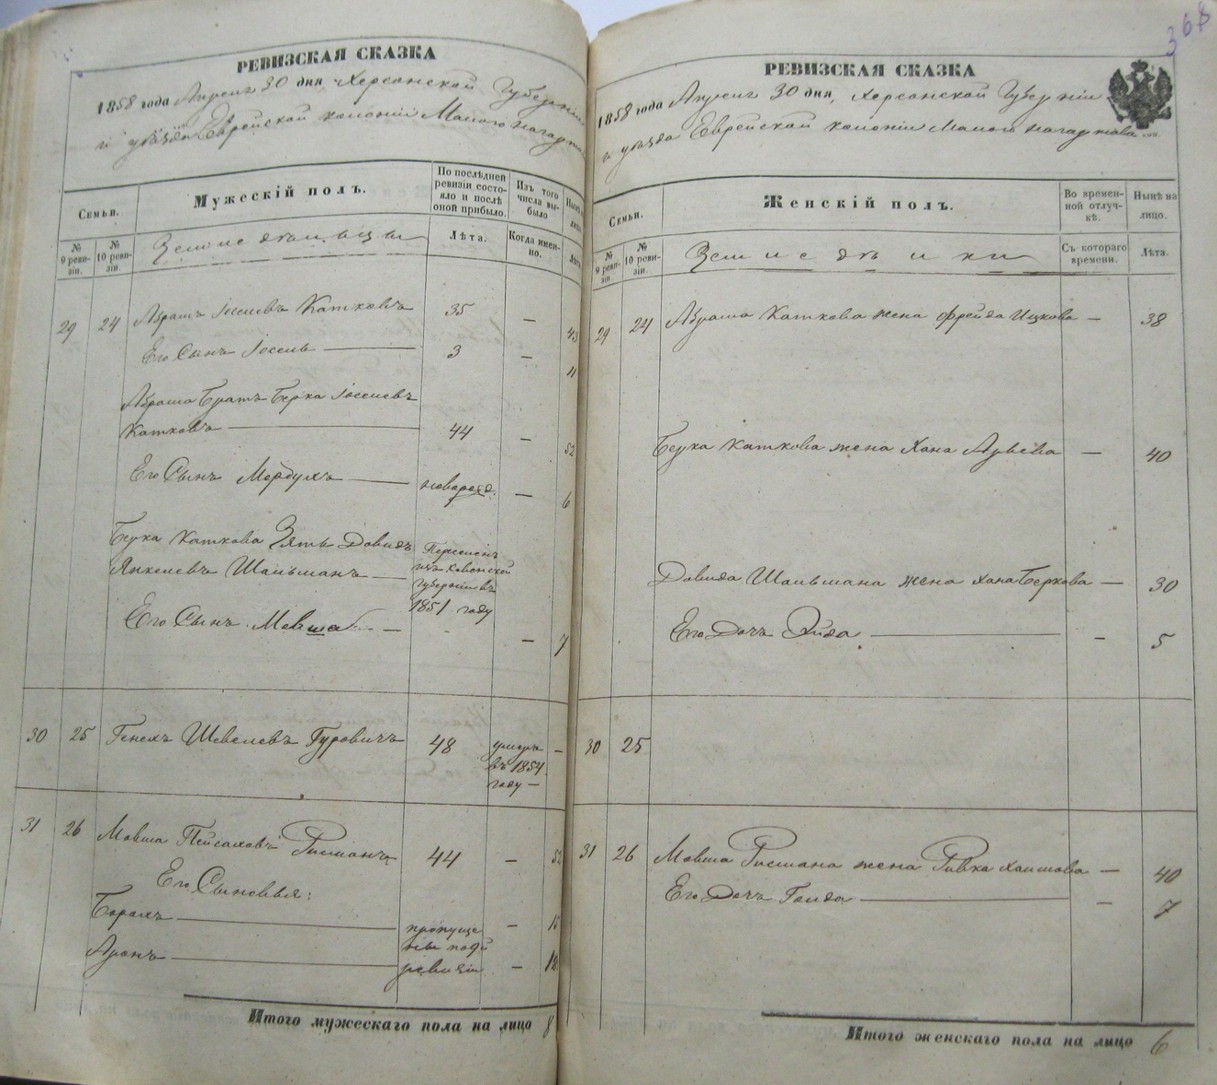 368
РЕВИЗСКАЯ СКАЗКА
1858 года Апреля 30 дня Херсонской Губерніи
и уѣзда Еврейской колоніи Малого Нагартова
Семьи.
Мужескій полъ.
По послѣдней ревизіи состояло и послѣ оной прибыло.
Изъ того числа выбыло
Нынѣ на лицо.
№ 9 ревизіи.
№ 10 ревизіи.
Земледѣльцы
Лѣта.
Когда именно.
Лѣта.
29 24 Абрамъ Іоселевъ Катковъ 35 — 43
Его Сынъ Іоссель — 3 — 11
Абрама Братъ Берка Іоселевъ
Катковъ — 44 — 52
Его Сынъ Мордухъ — новорожд. — 6
Берка Каткова Зять Довидъ
Янкелевъ Шальманъ —
Перечисленъ
изъ Ковенской
Губерніи въ
1851 году
Его Сынъ Мовша — — 7
30 25 Генехъ Шевелевъ Гуровичъ 48 умеръ —
въ 1854
году —
31 26 Мовша Пейсаховъ Рисманъ 44 — 52
Его Сыновья:
Борохъ — пропущены — 15
Аронъ — по 9й ревизіи — 12
Итого мужескаго пола на лицо 8
РЕВИЗСКАЯ СКАЗКА
1858 года Апреля 30 дня, Херсонской Губерніи
и уѣзда Еврейской колоніи Малого Нагартова
Семьи.
Женскій полъ.
Во временной отлучкѣ.
Нынѣ на лицо.
№ 9 ревизіи.
№ 10 ревизіи.
Съ котораго времени.
Лѣта.
29 24 Абрама Каткова жена Фрейда Ицкова — 38
Берка Каткова жена Хана Арьева — 40
Довида Шальмана жена Хана Беркова — 30
Его Дочь Эйда — — 5
30 25
31 26 Мовша Рисмана жена Ривка Хаимова — 40
Его Дочь Голда — — 7
Итого женскаго пола на лицо 6